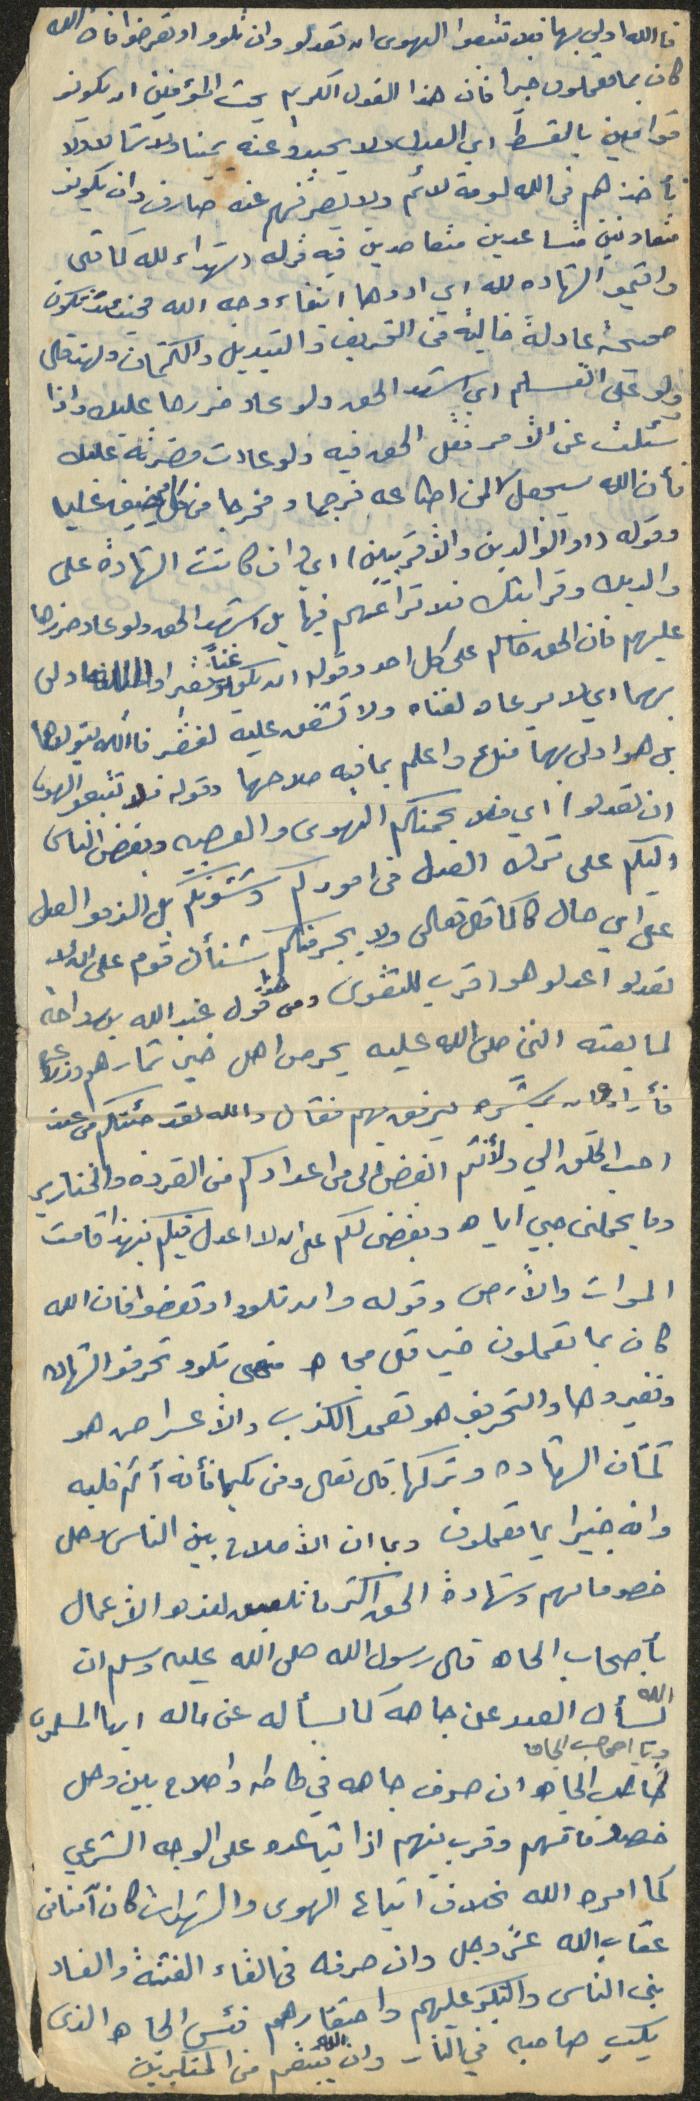 فالله اولى بهما فلا تتبعوا الهوى ان تعدلو وان تلوو او تعرضوا فان الله
كان بما تعملون خبيرا فان هذا القول الكريم يحث المؤمنين ان يكونو
قوامين بالقسط اي العدل ولا يحيدوا عنه يمينا ولا شمالا ولا
تأخذهم في الله لومة لائم ولا يصرفهم عنه صارف وان يكونو
متعاونين متساعدين متعاضدين فيه قوله (شهداء لله كما قال
واقيمو الشهاده لله اي ادوها ابتغاء وجه الله فحينئذ تكون
صحيحة عادلة خالية من التحريف والتبديل والكتمان ولهذا قال
ولو على انفسكم اي اشهد الحق ولو عاد ضررها عليك واذا
سئلت عن الأمر فقل الحق فيه ولو عادت مضرته عليك
فأن الله سيجعل لمن اطاعه فرجا ومخرجا من كل امر يضيق عليه
وقوله (او الوالدين والأقربين) اي وان كانت الشهادة على
والديك وقرابتك فلا تراعهم فيها بل اشهد الحق ولو عاد ضررها
عليهم فان الحق حاكم على كل احد وقوله ان يكون غنياً او فقيرا فالله اولى
بهما اي لا يرعاه لغناه ولا تشفق عليه لفقره فالله يتولاهما
بل هو اولى بهما منك واعلم بما فيه صلاحهما وقوله فلا تتبعو الهوى
ان تعدلو) اي فلا يحملنكم الهوى والعصبيه وبغض الناس
اليكم على ترك العدل في اموركم وشئونكم بل الزمو العدل
على اي حال كان كما قال تعالى ولا يجرمنكم شنأن قوم على ان لا
تعدلو اعدلو هو اقرب للتقوى ومن هذا قول عبد الله بن رواحة
لما بعثه النبي صلى الله عليه يخرص على اهل خيبر ثمارهم وزرعهم
فأرادو ان يرشوه ليرفق بهم فقال والله لقد جئتكم من عند
احب الخلق الي ولأنتم ابغض الي من اعدادكم من القرده والخنازير
وما يحملني حبي اياه وبغضي لكم على ان لا اعدل فيكم بهذا قامت
السموات والأرض وقوله وان تلوو او تعرضوا فان الله
كان بما تعملون خبيرا قال مجاهد معنى تلوو تحرفو الشهاده
وتغيروها والتحريف هو تعمد الكذب والأعراض هو
كتمان الشهاده وتركها قال تعالى ومن يكتمها فأنه آثم قلبه
وانه خبيرا بما تعملون وبما ان الأصلاح بين الناس وحل
خصوماتهم وشهادة الحق اكثر ما تلصق لهذه الأعمال
بأصحاب الجاه قال رسول الله صلى الله عليه وسلم ان
الله
ليسأل العبد عن جاهه كما يسأله عن ماله ايها المسلمون
ويا اصحاب الجاه
صاحب الجاه ان صرف جاهه في طاعه واصلاح بين وحل
خصوماتهم وقرب بينهم اذا تباعدو على الوجه الشرعي
كما امره الله بخلاف اتباع الهوى والشهوات كان آمنا من
عقاب الله عز وجل وان صرفه في القاء الفتنة والفساد
بين الناس والتكبر عليهم واحتقارهم فبئس الجاه الذي
يكب صاحبه في النار وان الله ينتقم من المتكبرين